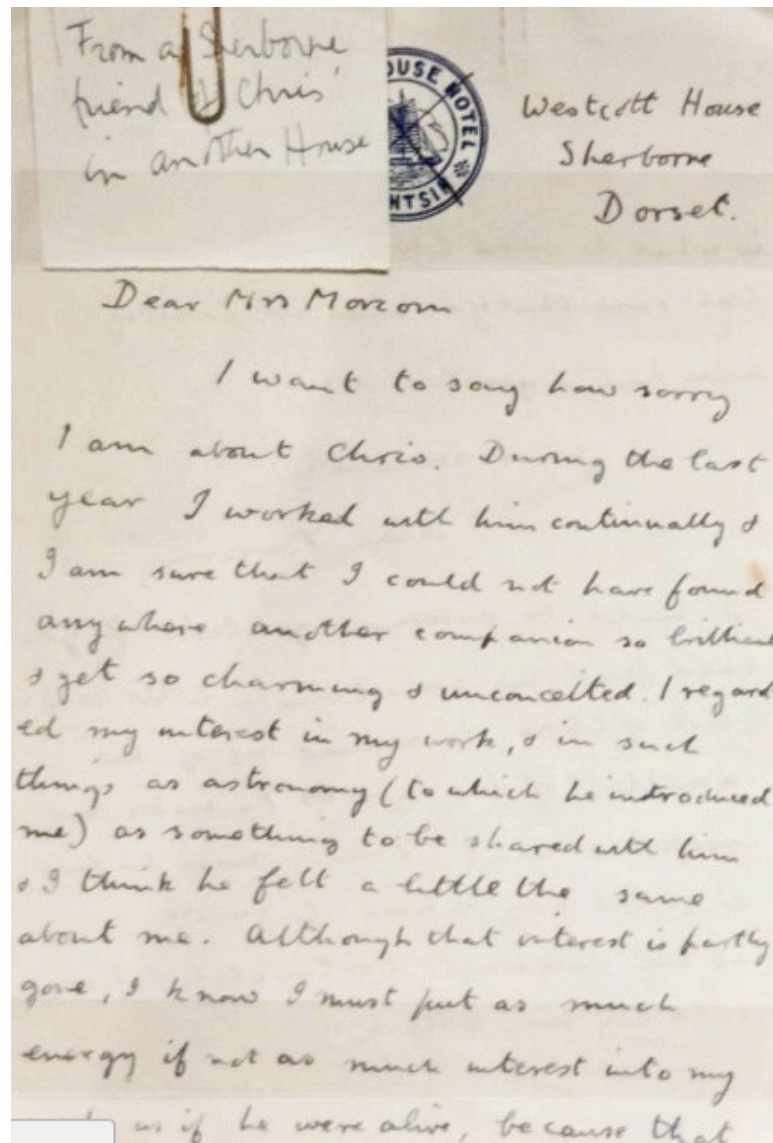 From a Sherborne
friend of Chris'
in another House
OUSE HOTEL
NTSIN
Westcott House
Sherborne
Dorset.
Dear Mrs Morcom
I want to say how sorry
I am about Chris. During the last
year I worked with him continually &
I am sure that I could not have found
anywhere another companion so brillian
& yet so charming & unconceited. I regard
ed my interest in my work, & in such
things as astronomy (to which he introduced
me) as something to be shared with him
& I think he felt a little the same
about me. Although that interest is partly
gone, I know I must put as much
energy if not as much interest into my
as if he were alive, because that